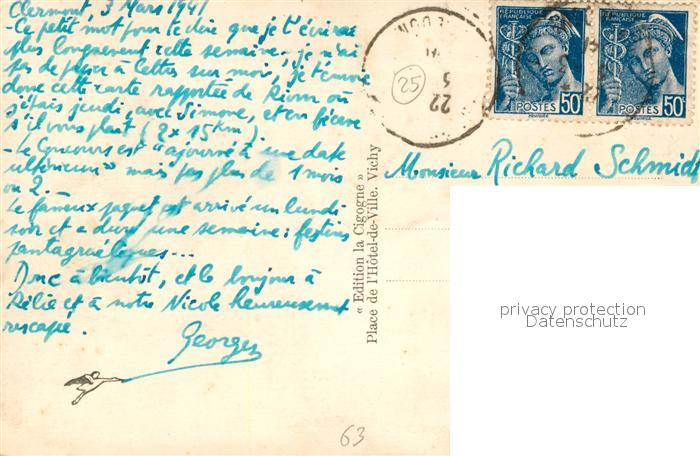 Clermont, 3 Mars 1941
- Ce petit mot pour te dire que je t'écrirai
plus longuement cette semaine ; je n'ai
pas de papier à lettres sur moi, je t'envoie
donc cette carte rapportée de Riom où
j'étais jeudi, avec Simone, et en bécane
s'il vous plaît (2 x 15 km).
- Le Concours est "ajourné à une date
ultérieure" mais pas plus de 1 mois
ou 2.
Le fameux paquet est arrivé un lundi
soir et a duré une semaine : festins
pantagruéliques...
Donc à bientôt, et le bonjour à
Lélie et à notre Nicole heureusement
rescapée.
Georges
63
« Edition la Cigogne »
Place de l'Hôtel-de-Ville. Vichy
25
22
5
RÉPUBLIQUE
FRANÇAISE
POSTES 50
RÉPUBLIQUE
FRANÇAISE
POSTES 50
Monsieur Richard Schmidt
privacy protection
Datenschutz